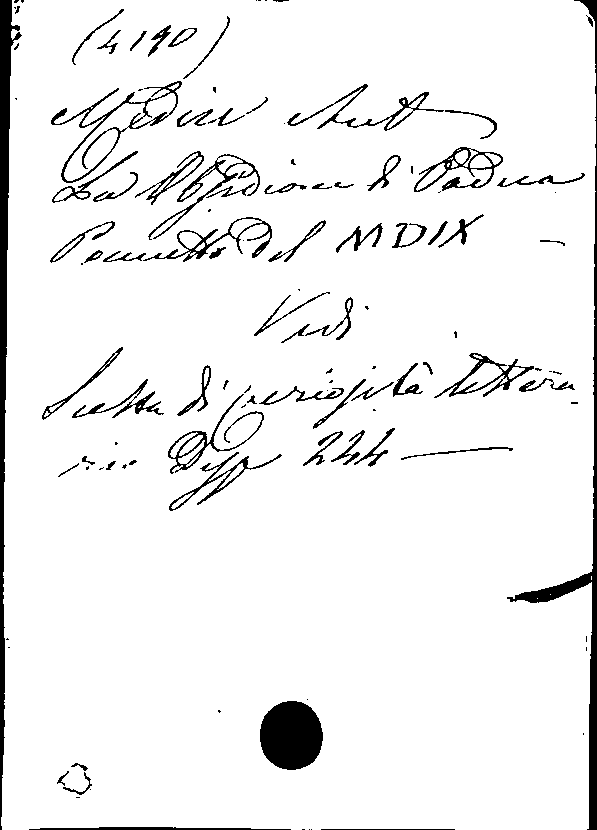 (4190)
Medin Ant
La Obsidione di Padua
Poemetto del MDIX –
Vedi
Scelta di curiosità lettera-
rie Disp 244 —